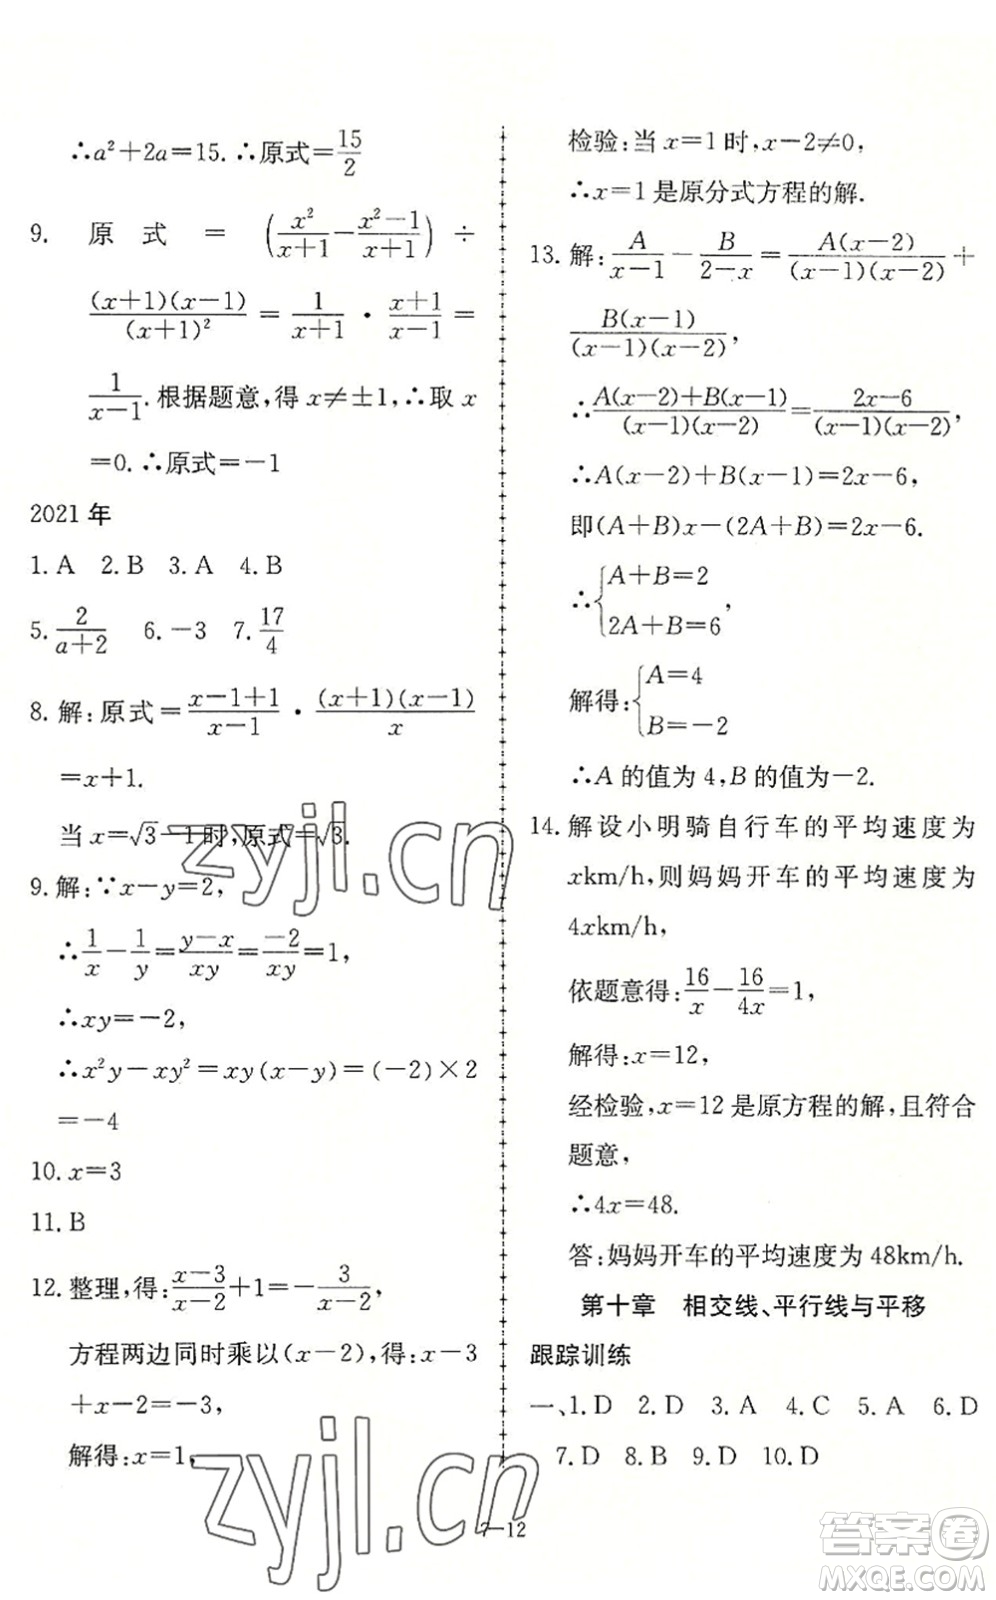 ∴a²+2a=15. ∴原式=15/2
9. 原 式 = (x²/(x+1) - (x²-1)/(x+1)) ÷
(x+1)(x-1)/(x+1)² = 1/(x+1) · (x+1)/(x-1) =
1/(x-1). 根据题意,得 x≠±1,∴取 x
=0. ∴原式=-1
2021年
1. A 2. B 3. A 4. B
5. 2/(a+2) 6. -3 7. 17/4
8. 解:原式=(x-1+1)/(x-1) · (x+1)(x-1)/x
=x+1.
当 x=√3-1时,原式=√3.
9. 解:∵x-y=2,
∴1/x-1/y=(y-x)/xy=-2/xy=1,
∴xy=-2,
∴x²y-xy²=xy(x-y)=(-2)×2
=-4
10. x=3
11. B
12. 整理,得:(x-3)/(x-2)+1=-3/(x-2),
方程两边同时乘以(x-2),得:x-3
+x-2=-3,
解得:x=1,
检验:当 x=1 时,x-2≠0,
∴x=1 是原分式方程的解.
13. 解:A/(x-1) - B/(2-x) = A(x-2)/(x-1)(x-2) +
B(x-1)/(x-1)(x-2),
∴(A(x-2)+B(x-1))/(x-1)(x-2)=(2x-6)/(x-1)(x-2),
∴A(x-2)+B(x-1)=2x-6,
即(A+B)x-(2A+B)=2x-6.
∴{A+B=2
2A+B=6,
解得:{A=4
B=-2
∴A 的值为 4,B 的值为-2.
14. 解设小明骑自行车的平均速度为
xkm/h,则妈妈开车的平均速度为
4xkm/h,
依题意得:16/x-16/4x=1,
解得:x=12,
经检验,x=12 是原方程的解,且符合
题意,
∴4x=48.
答:妈妈开车的平均速度为 48km/h.
第十章 相交线、平行线与平移
跟踪训练
一、1. D 2. D 3. A 4. C 5. A 6. D
7. D 8. B 9. D 10. D
7—12
zyjl.cn
zyjl.cn
答案圈
MXQE.COM